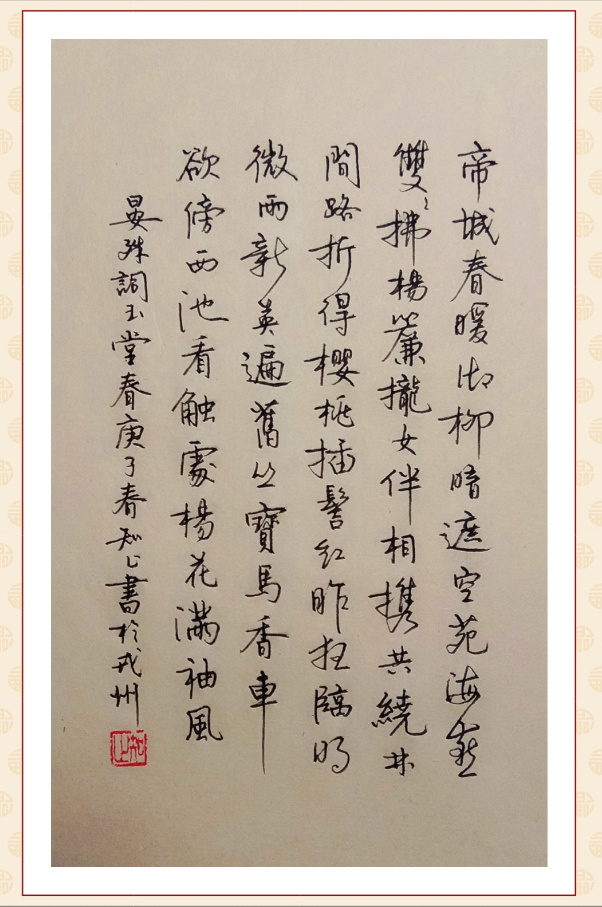 帝城春暖御柳暗遮空苑海燕
雙〻拂揚簾攏女伴相携共繞林
間路折得櫻桃插髻紅昨夜臨明
微雨新英遍舊丛寶馬香車
欲傍西池看触處楊花滿袖風
晏殊詞玉堂春庚子春知止書於戎州
知止